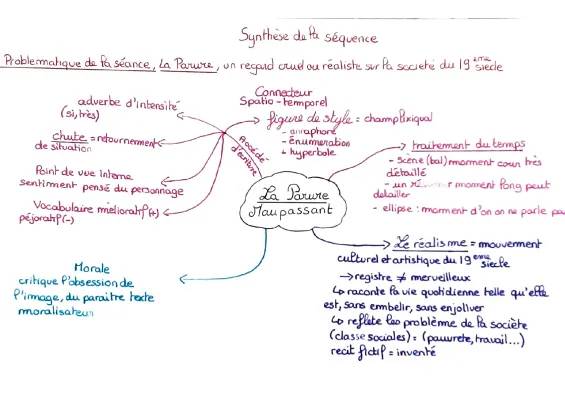 Synthèse de la séquence
Problematique de la séance, La Parure, un regard cruel ou réaliste sur la société du 19 ème siècle
adverbe d'intensité
(si, très)
chute = retournement
de situation
Point de vue Interne
sentiment pensé du personnage
Vocabulaire mélioratif (+)
péjoratif (-)
Procédé
d'écriture
Connecteur
Spatio-temporel
figure de style = champ lexiqual
- anaphore
- énumération
+ hyperbole
La Parure
Maupassant
traitement du temps
- Scène (bal) moment court très
détaillé
- un moment long peut
detailler
- ellipse : moment d'on on ne parle pas
Le réalisme = mouvement
culturel et artistique du 19 eme siecle
→ registre ≠ merveilleux
↳ raconte la vie quotidienne telle qu'elle
est, sans embelir, sans enjoliver
↳ reflète les problème de la sociète
(classe sociales) = (pauvrete, travail...)
recit fictif = inventé
Morale
critique l'obsession de
l'image, du paraitre texte
moralisateur